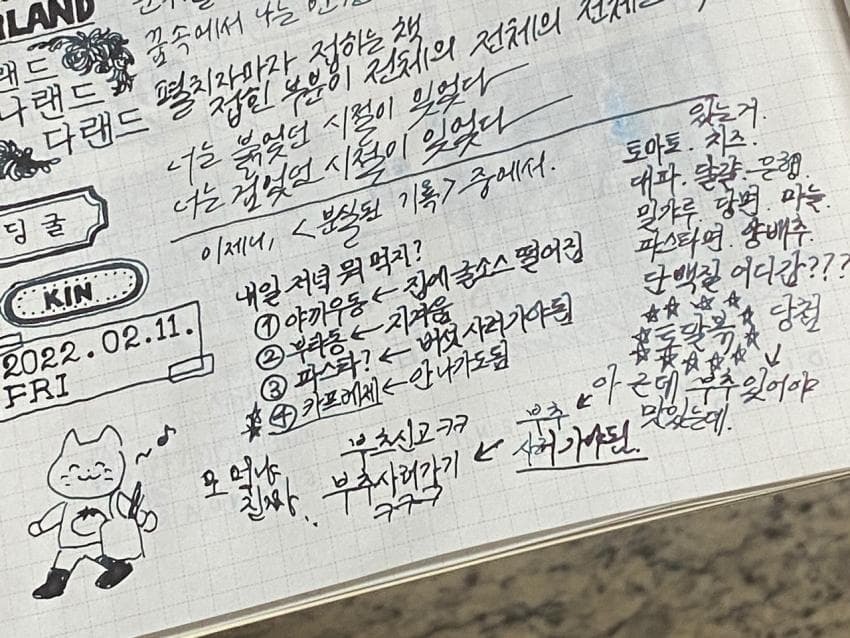 LAND
꿈속에서 나는
랜드
나랜드
다랜드
펼치자마자 접하는 책
접힌 부분이 전체의 전체의 전체
너는 붉었던 시절이 있었다
너는 검었던 시절이 있었다
이제니, <분실된 기록> 중에서.
딩굴
KIN
2022.02.11.
FRI
내일 저녁 뭐 먹지?
① 야끼우동 ← 집에 굴소스 떨어짐
② 부타동 ← 지겨움
③ 파스타? ← 버섯 사러가야됨
④ 카프레제 ← 안 나가도됨
있는거.
토마토. 치즈.
대파. 달걀. 은행.
밀가루. 당면. 마늘.
파스타면. 양배추.
단백질 어디감???
토달볶 당첨
아 근데 부추 있어야
맛있는데.
부추
사러가야됨.
부츠신고 ㅋㅋ
부추사러가기
ㅋㅋㅋ
모 먹냐
진짜..